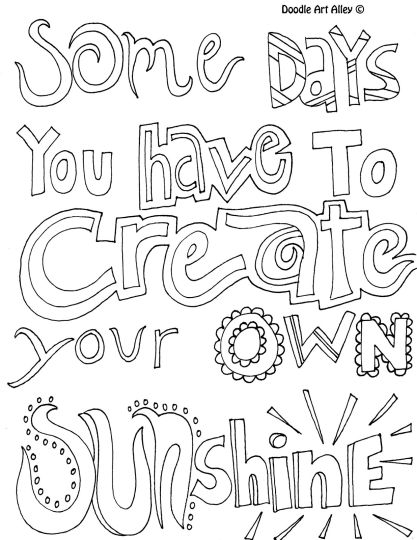 Doodle Art Alley ©
Some Days
You have To
Create
your OWN
SUNshinE